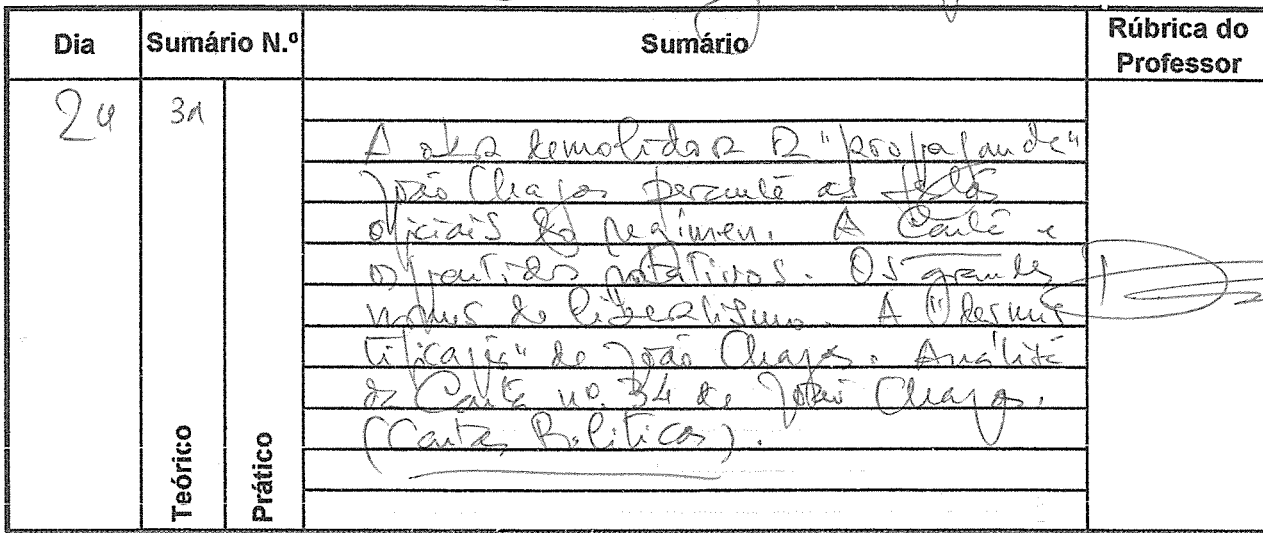 Dia Sumário N.º Sumário Rúbrica do Professor
24 31
A obra demolidora da "propaganda"
João Chagas perante as festas
oficiais do regimen. A Carta e
os partidos rotativos. Os grandes
nomes do liberalismo. A "desmis
tificação" de João Chagas. Análise
da Carta nº 34 de João Chagas.
(Cartas Políticas).
Teórico
Prático